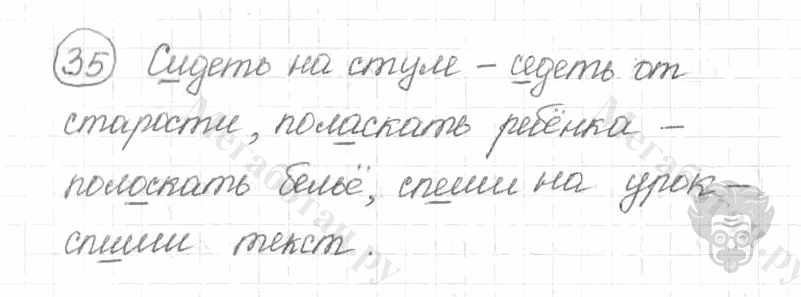 35 Сидеть на стуле - седеть от
старости, поласкать ребёнка -
полоскать бельё, спеши на урок -
спиши текст.
Мегаботан.ру
Мегаботан.ру